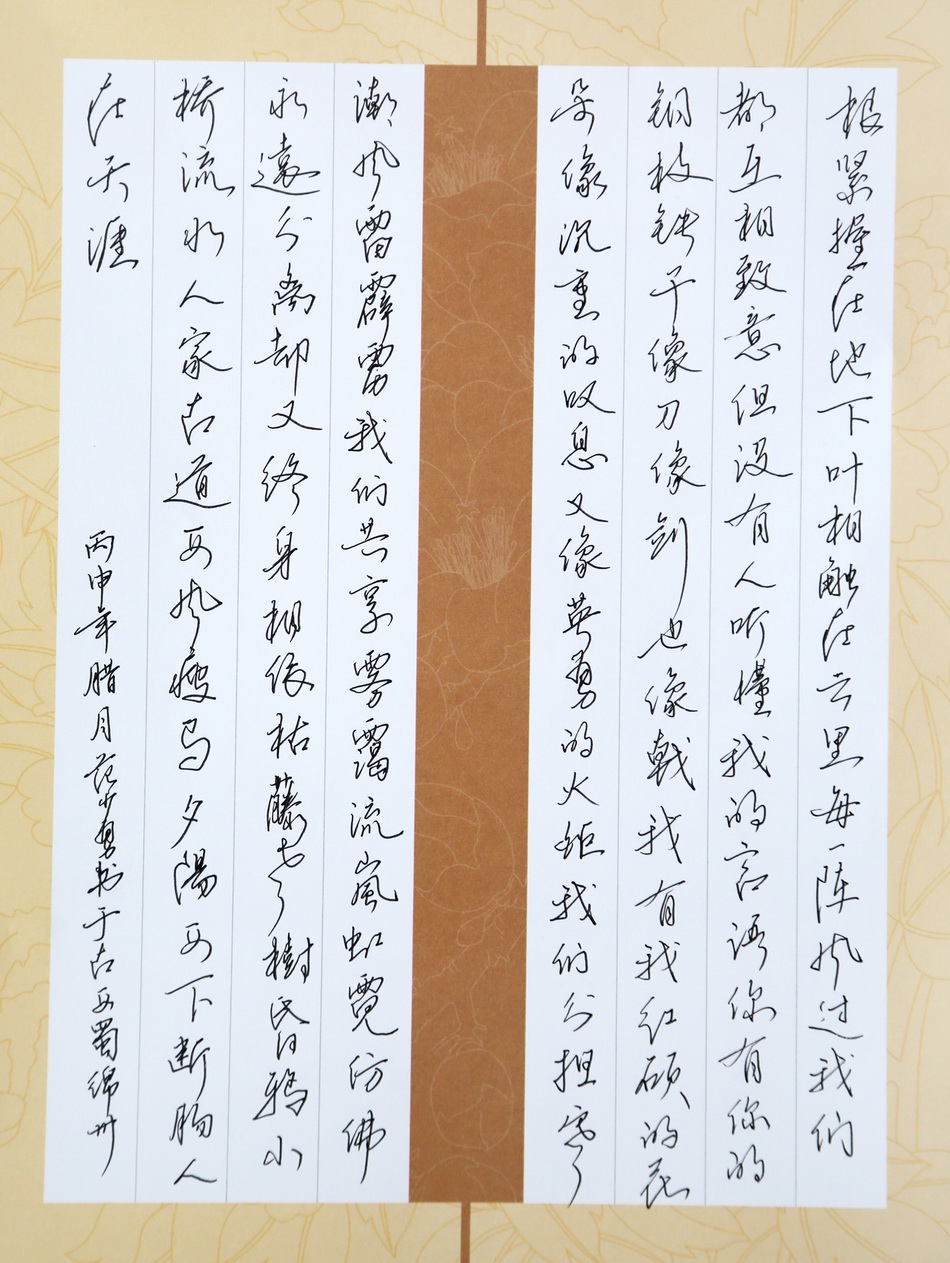 根紧握在地下叶相触在云里每一阵风过我们
都互相致意但没有人听懂我的言语你有你的
铜枝铁干像刀像剑也像戟我有我红硕的花
朵像沉重的叹息又像英勇的火炬我们分担寒
潮风雷霹雳我们共享雾霭流岚虹霓仿佛
永遠分离却又终身相依枯藤老樹昏鸦小
桥流水人家古道西风瘦马夕陽西下断肠人
在天涯
丙申年腊月范少勇书于古西蜀绵州